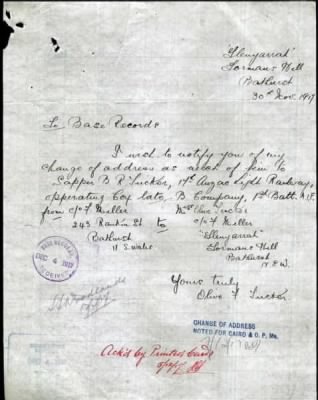 "Glenyarrah"
Gormans Hill
Bathurst
30th Nov. 1917
To Base Records
I wish to notify you of my
change of address as next of kin to
Sapper B R Tucker, 17th Anzac Light Railway,
operating Coy late, B Company, 1st Batt. A.I.F.
from c/o F Miller
243 Rankin St to
Bathurst
N. S Wales
Mrs Olive Tucker
c/o F Miller
"Glenyarrah"
Gormans Hill
Bathurst
N.S.W.
Yours truly
Olive F Tucker
BASE RECORDS
DEC 4 1917
RECEIVED
CHANGE OF ADDRESS
NOTED FOR CAIRO & O. P. Ms.
Ackd by Printed Card